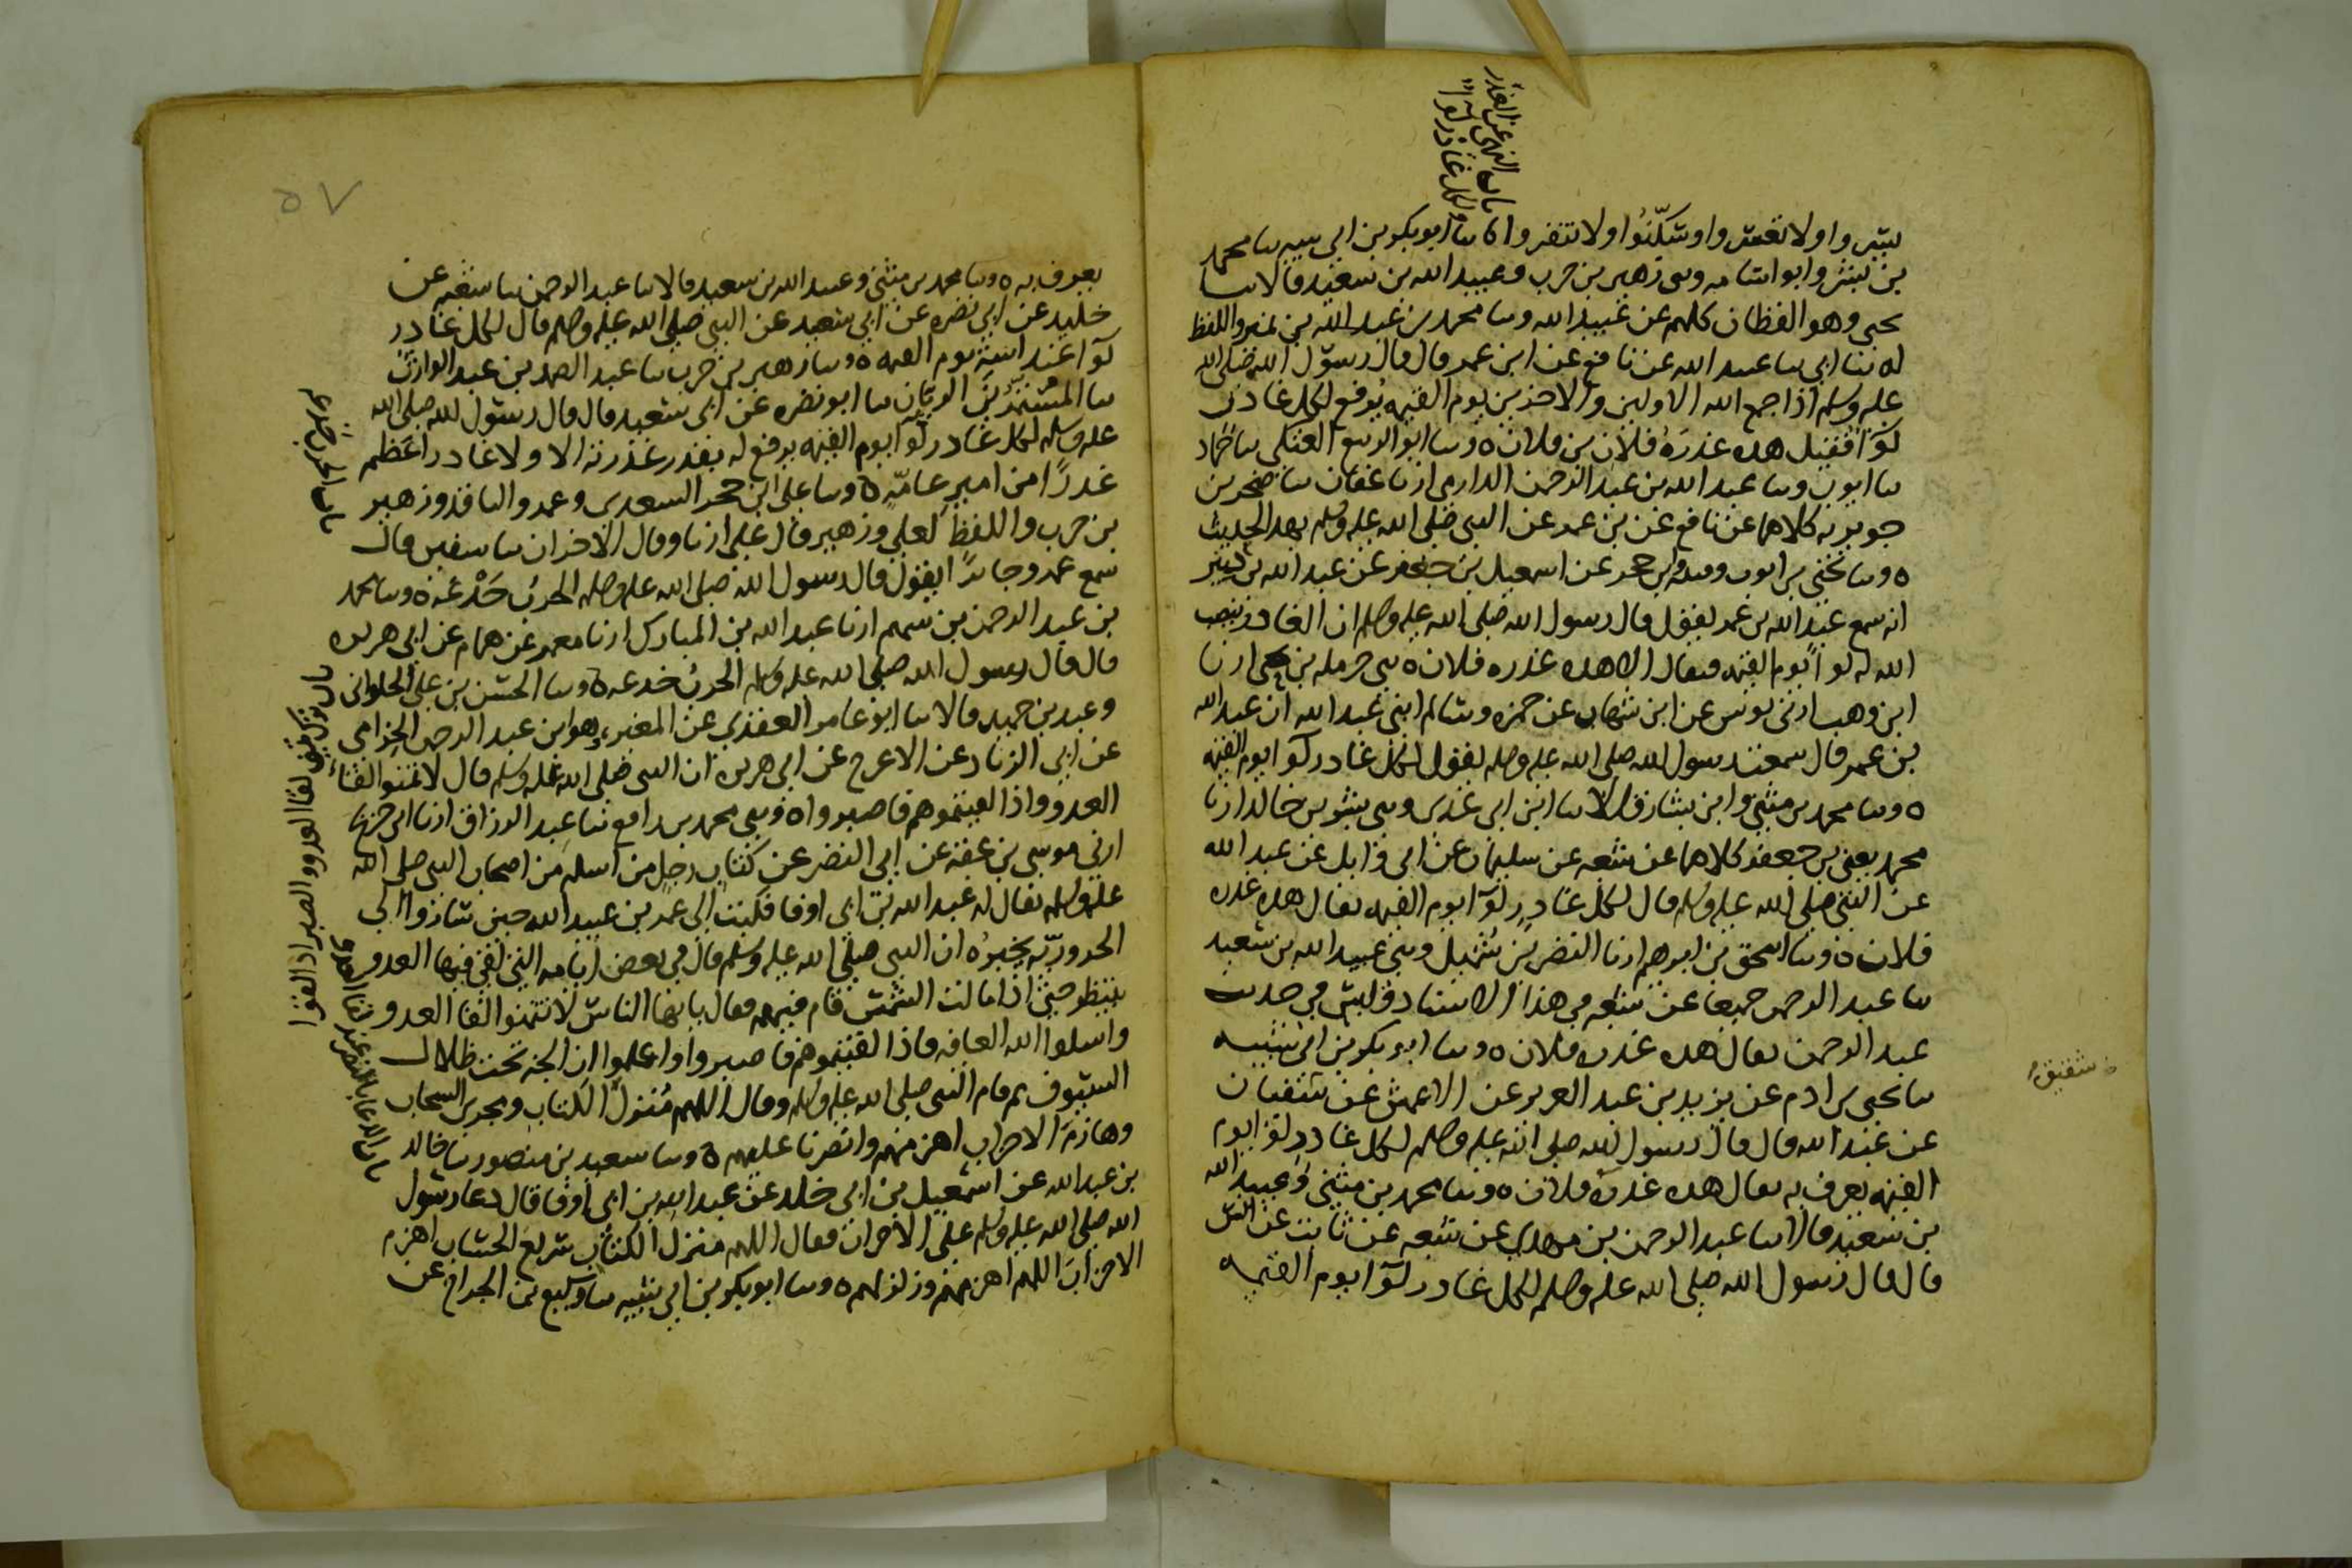 باب النهي عن الغدر
ولكل غادر لوا
يسروا ولا تعسروا وسكّنوا ولا تنفروا ٥ ثنا ابو بكر بن ابي شيبه ثنا محمد
بن بشر وابو اسامه وثني زهير بن حرب وعبيد الله بن سعيد قالا ثنا
يحيى وهو القطان كلهم عن عبيد الله وثنا محمد بن عبد الله بن نمير واللفظ
له ثنا ابي ثنا عبيد الله عن نافع عن ابن عمر قال قال رسول الله صلى الله
عليه وسلم اذا جمع الله الاولين والاخرين يوم القيمه يُرفع لكل غادر
لوآ فقيل هذه غدرة فلان بن فلان ٥ وثنا ابو الربيع العتكي ثنا حماد
ثنا ايوب وثنا عبد الله بن عبد الرحمن الدارمي ارنا عفان ثنا صخر بن
جويريه كلاهما عن نافع عن بن عمر عن النبي صلى الله عليه وسلم بهذا الحديث
٥ وثنا يحيى بن ايوب وقتيبه وابن حجر عن اسمعيل بن جعفر عن عبد الله بن دينر
انه سمع عبد الله بن عمر يقول قال رسول الله صلى الله عليه وسلم ان الغادر ينصب
الله له لوآ يوم القيمه فيقال الا هذه غدره فلان ٥ ثني حرمله بن يحيى ارنا
ابن وهب ارني يونس عن ابن شهاب عن حمزه وسالم ابني عبد الله ان عبد الله
بن عمر قال سمعت رسول الله صلى الله عليه وسلم يقول لكل غادر لوآ يوم القيمه
٥ وثنا محمد بن مثنى وابن بشار قالا ثنا ابن ابي عدي وثني بشر بن خالد ارنا
محمد يعني بن جعفر كلاهما عن شعبه عن سليمان عن ابي وايل عن عبد الله
عن النبي صلى الله عليه وسلم قال لكل غادرٍ لوآ يوم القيمه يقال هذه غدره
فلان ٥ وثنا اسحق بن ابرهيم ارنا النضر بن شميل وثني عبيد الله بن سعيد
ثنا عبد الرحمن جميعا عن شعبه في هذا الاسناد وليس في حديث
عبد الرحمن يقال هذه غدره فلان ٥ وثنا ابو بكر بن ابي شيبه
ثنا يحيى بن ادم عن يزيد بن عبد العزيز عن الاعمش عن شقيق
شقيق
عن عبد الله قال قال رسول الله صلى الله عليه وسلم لكل غادرٍ لوآ يوم
القيمه يعرف به يقال هذه غدره فلان ٥ وثنا محمد بن مثنى وعبيد الله
بن سعيد قالا ثنا عبد الرحمن بن مهدي عن شعبه عن ثابت عن انس
قال قال رسول الله صلى الله عليه وسلم لكل غادر لوآ يوم القيمه
٥٧
يعرف به ٥ وثنا محمد بن مثنى وعبيد الله بن سعيد قالا ثنا عبد الرحمن ثنا شعبه عن
خليد عن ابي نضره عن ابي سعيد عن النبي صلى الله عليه وسلم قال لكل غادر
لوآ عند استه يوم القيمه ٥ وثنا زهير بن حرب ثنا عبد الصمد بن عبد الوارث
ثنا المستمرّ بن الريان ثنا ابو نضره عن ابي سعيد قال قال رسول الله صلى الله
عليه وسلم لكل غادر لوآ يوم القيمه يرفع له بقدر غدرته الا ولا غادر اعظم
غدرًا من امير عامّه ٥ وثنا علي ابن حجر السعدي وعمرو الناقد وزهير
باب الحرب خدعه
بن حرب واللفظ لعلي وزهير قال علي ارنا وقال الاخران ثنا سفين قال
سمع عمرو جابرًا يقول قال رسول الله صلى الله عليه وسلم الحرب خَدْعَة ٥ وثنا محمد
بن عبد الرحمن بن سهم ارنا عبد الله بن المبارك ارنا معمر عن همام عن ابي هريره
قال قال رسول الله صلى الله عليه وسلم الحرب خدعه ٥ وثنا الحسن بن علي الحلواني
وعبد بن حميد قالا ثنا ابو عامر العقدي عن المغيره وهو ابن عبد الرحمن الحزامي
عن ابي الزناد عن الاعرج عن ابي هريره ان النبي صلى الله عليه وسلم قال لا تمنوا لقاء
العدو واذا لقيتموهم فاصبروا ٥ وثني محمد بن رافع ثنا عبد الرزاق ارنا ابن جريج
ارني موسى بن عقبه عن ابي النضر عن كتاب رجل من اسلم من اصحاب النبي صلى الله
عليه وسلم يقال له عبد الله بن ابي اوفا فكتب الى عمر بن عبيد الله حين سار الى
الحروريّه يخبره ان النبي صلى الله عليه وسلم قال في بعض ايامه التي لقي فيها العدو
ينتظر حتى اذا مالت الشمس قام فيهم فقال يا ايها الناس لا تتمنوا لقا العدو
واسلوا الله العافيه فاذا لقيتموهم فاصبروا واعلموا ان الجنه تحت ظلال
السيوف ثم قام النبي صلى الله عليه وسلم وقال اللهم منزلَ الكتاب ومجري السحاب
وهازمَ الاحزاب اهزمهم وانصرنا عليهم ٥ وثنا سعيد بن منصور ثنا خالد
بن عبد الله عن اسمعيل بن ابي خلد عن عبد الله بن ابي اوفا قال دعا رسول
الله صلى الله عليه وسلم على الاحزاب فقال اللهم منزل الكتاب سريع الحساب اهزم
الاحزابَ اللهم اهزمهم وزلزلهم ٥ وثنا ابو بكر بن ابي شيبه ثنا وكيع بن الجراح عن
باب ترك تمني لقا العدو والصبر اذا لقوا
باب الدعا بالنصر عند لقا العدو